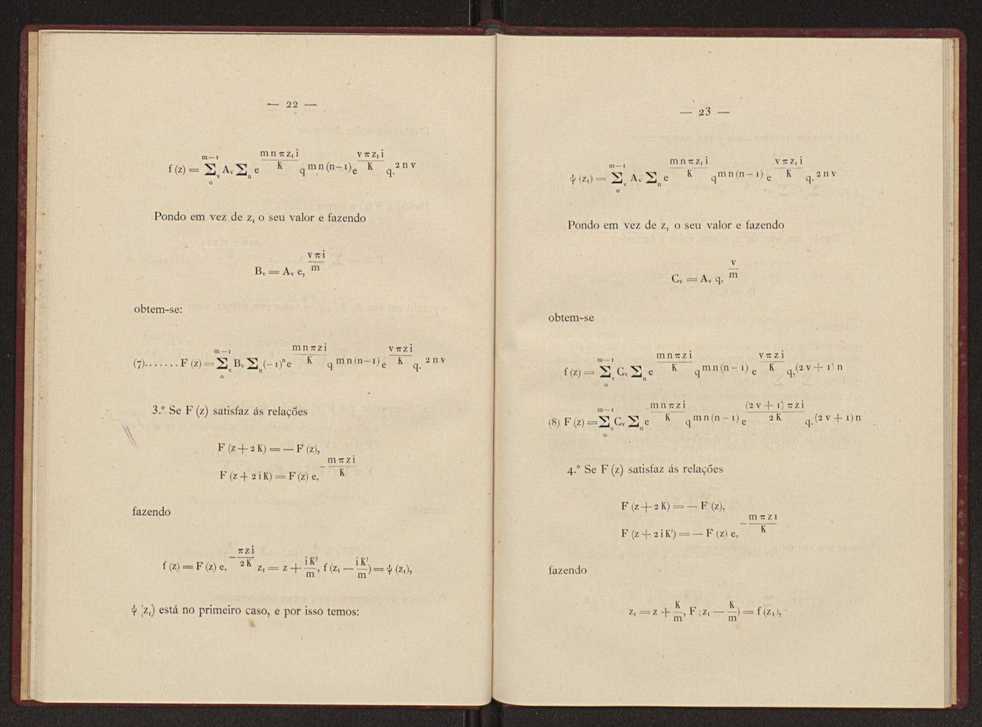 — 22 —
f (z) = Σ_v^{m—1}_0 A_v Σ_n e^{m n π z₁ i / K} q^{m n (n—1)} e^{v π z₁ i / K} q.^{2 n v}
Pondo em vez de z₁ o seu valor e fazendo
B_v = A_v e,^{v π i / m}
obtem-se:
(7)....... F (z) = Σ_v^{m—1}_0 B_v Σ_n (—1)^n e^{m n π z i / K} q^{m n (n—1)} e^{v π z i / K} q.^{2 n v}
3.º Se F (z) satisfaz ás relações
F (z + 2 K) = — F (z),
F (z + 2 i K) = F (z) e.^{— m π z i / K}
fazendo
f (z) = F (z) e.^{— π z i / 2 K} z₁ = z + i K' / m, f (z₁ — i K' / m) = ψ (z₁),
ψ (z₁) está no primeiro caso, e por isso temos:
— 23 —
ψ (z₁) = Σ_v^{m—1}_0 A_v Σ_n e^{m n π z₁ i / K} q^{m n (n—1)} e^{v π z₁ i / K} q.^{2 n v}
Pondo em vez de z₁ o seu valor e fazendo
C_v = A_v q,^{v / m}
obtem-se
f (z) = Σ_v^{m—1}_0 C_v Σ_n e^{m n π z i / K} q^{m n (n—1)} e^{v π z i / K} q,^{(2 v + 1) n}
(8) F (z) = Σ_v^{m—1}_0 C_v Σ_n e^{m n π z i / K} q^{m n (n—1)} e^{(2 v + 1) π z i / 2 K} q.^{(2 v + 1) n}
4.º Se F (z) satisfaz ás relações
F (z + 2 K) = — F (z),
F (z + 2 i K') = — F (z) e,^{— m π z i / K}
fazendo
z₁ = z + K / m, F (z₁ — K / m) = f (z₁),